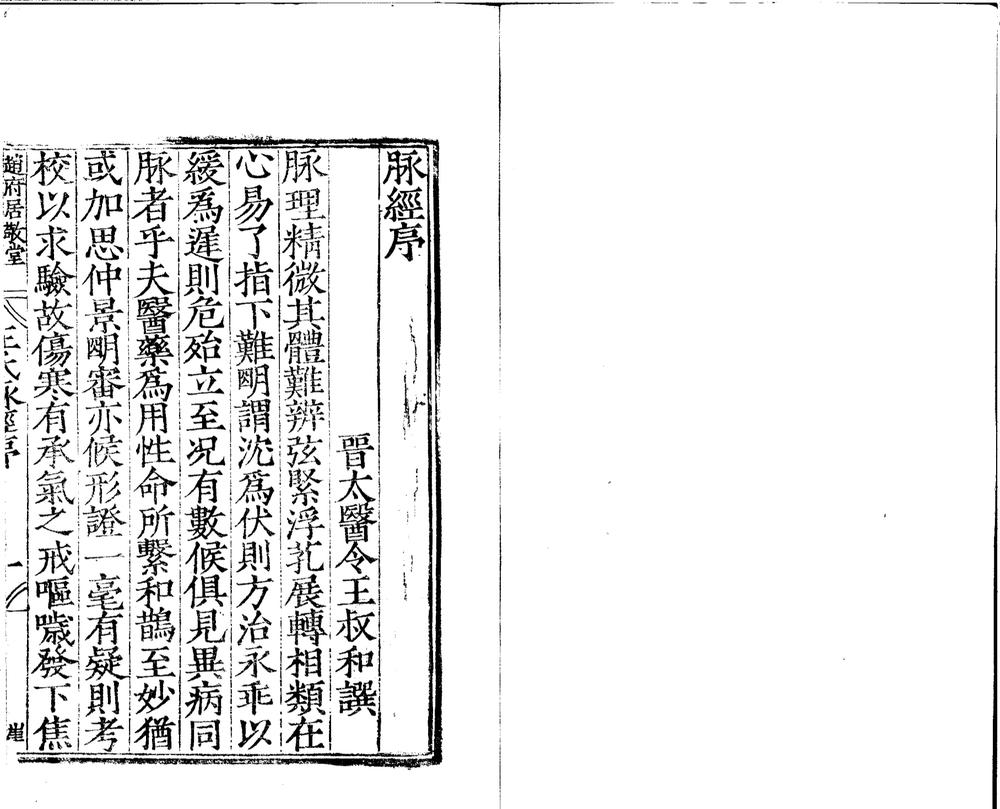 脉經序
晉太醫令王叔和譔
脉理精微其體難辨弦緊浮芤展轉相類在
心易了指下難明謂沈爲伏則方治永乖以
緩爲遲則危殆立至况有數候俱見異病同
脉者乎夫醫藥爲用性命所繫和鵲至妙猶
或加思仲景明審亦候形證一毫有疑則考
校以求驗故傷寒有承氣之戒嘔噦發下焦
趙府居敬堂
王氏脉經序
一